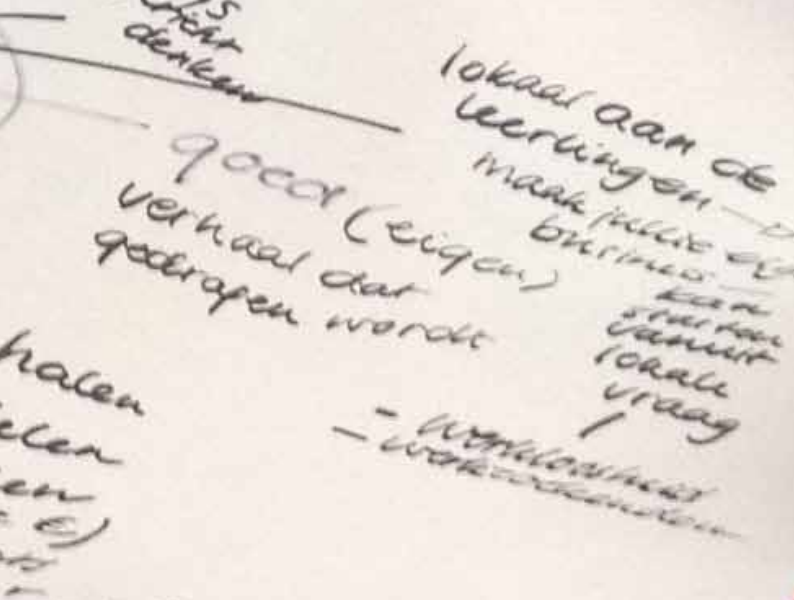 denken
goed (eigen)
verhaal dat
gedragen wordt
lokaal aan de
leerlingen
maak jullie
business
kan
starten
vanuit
lokale
vraag
- werkloosheid
- werkzoekenden
halen